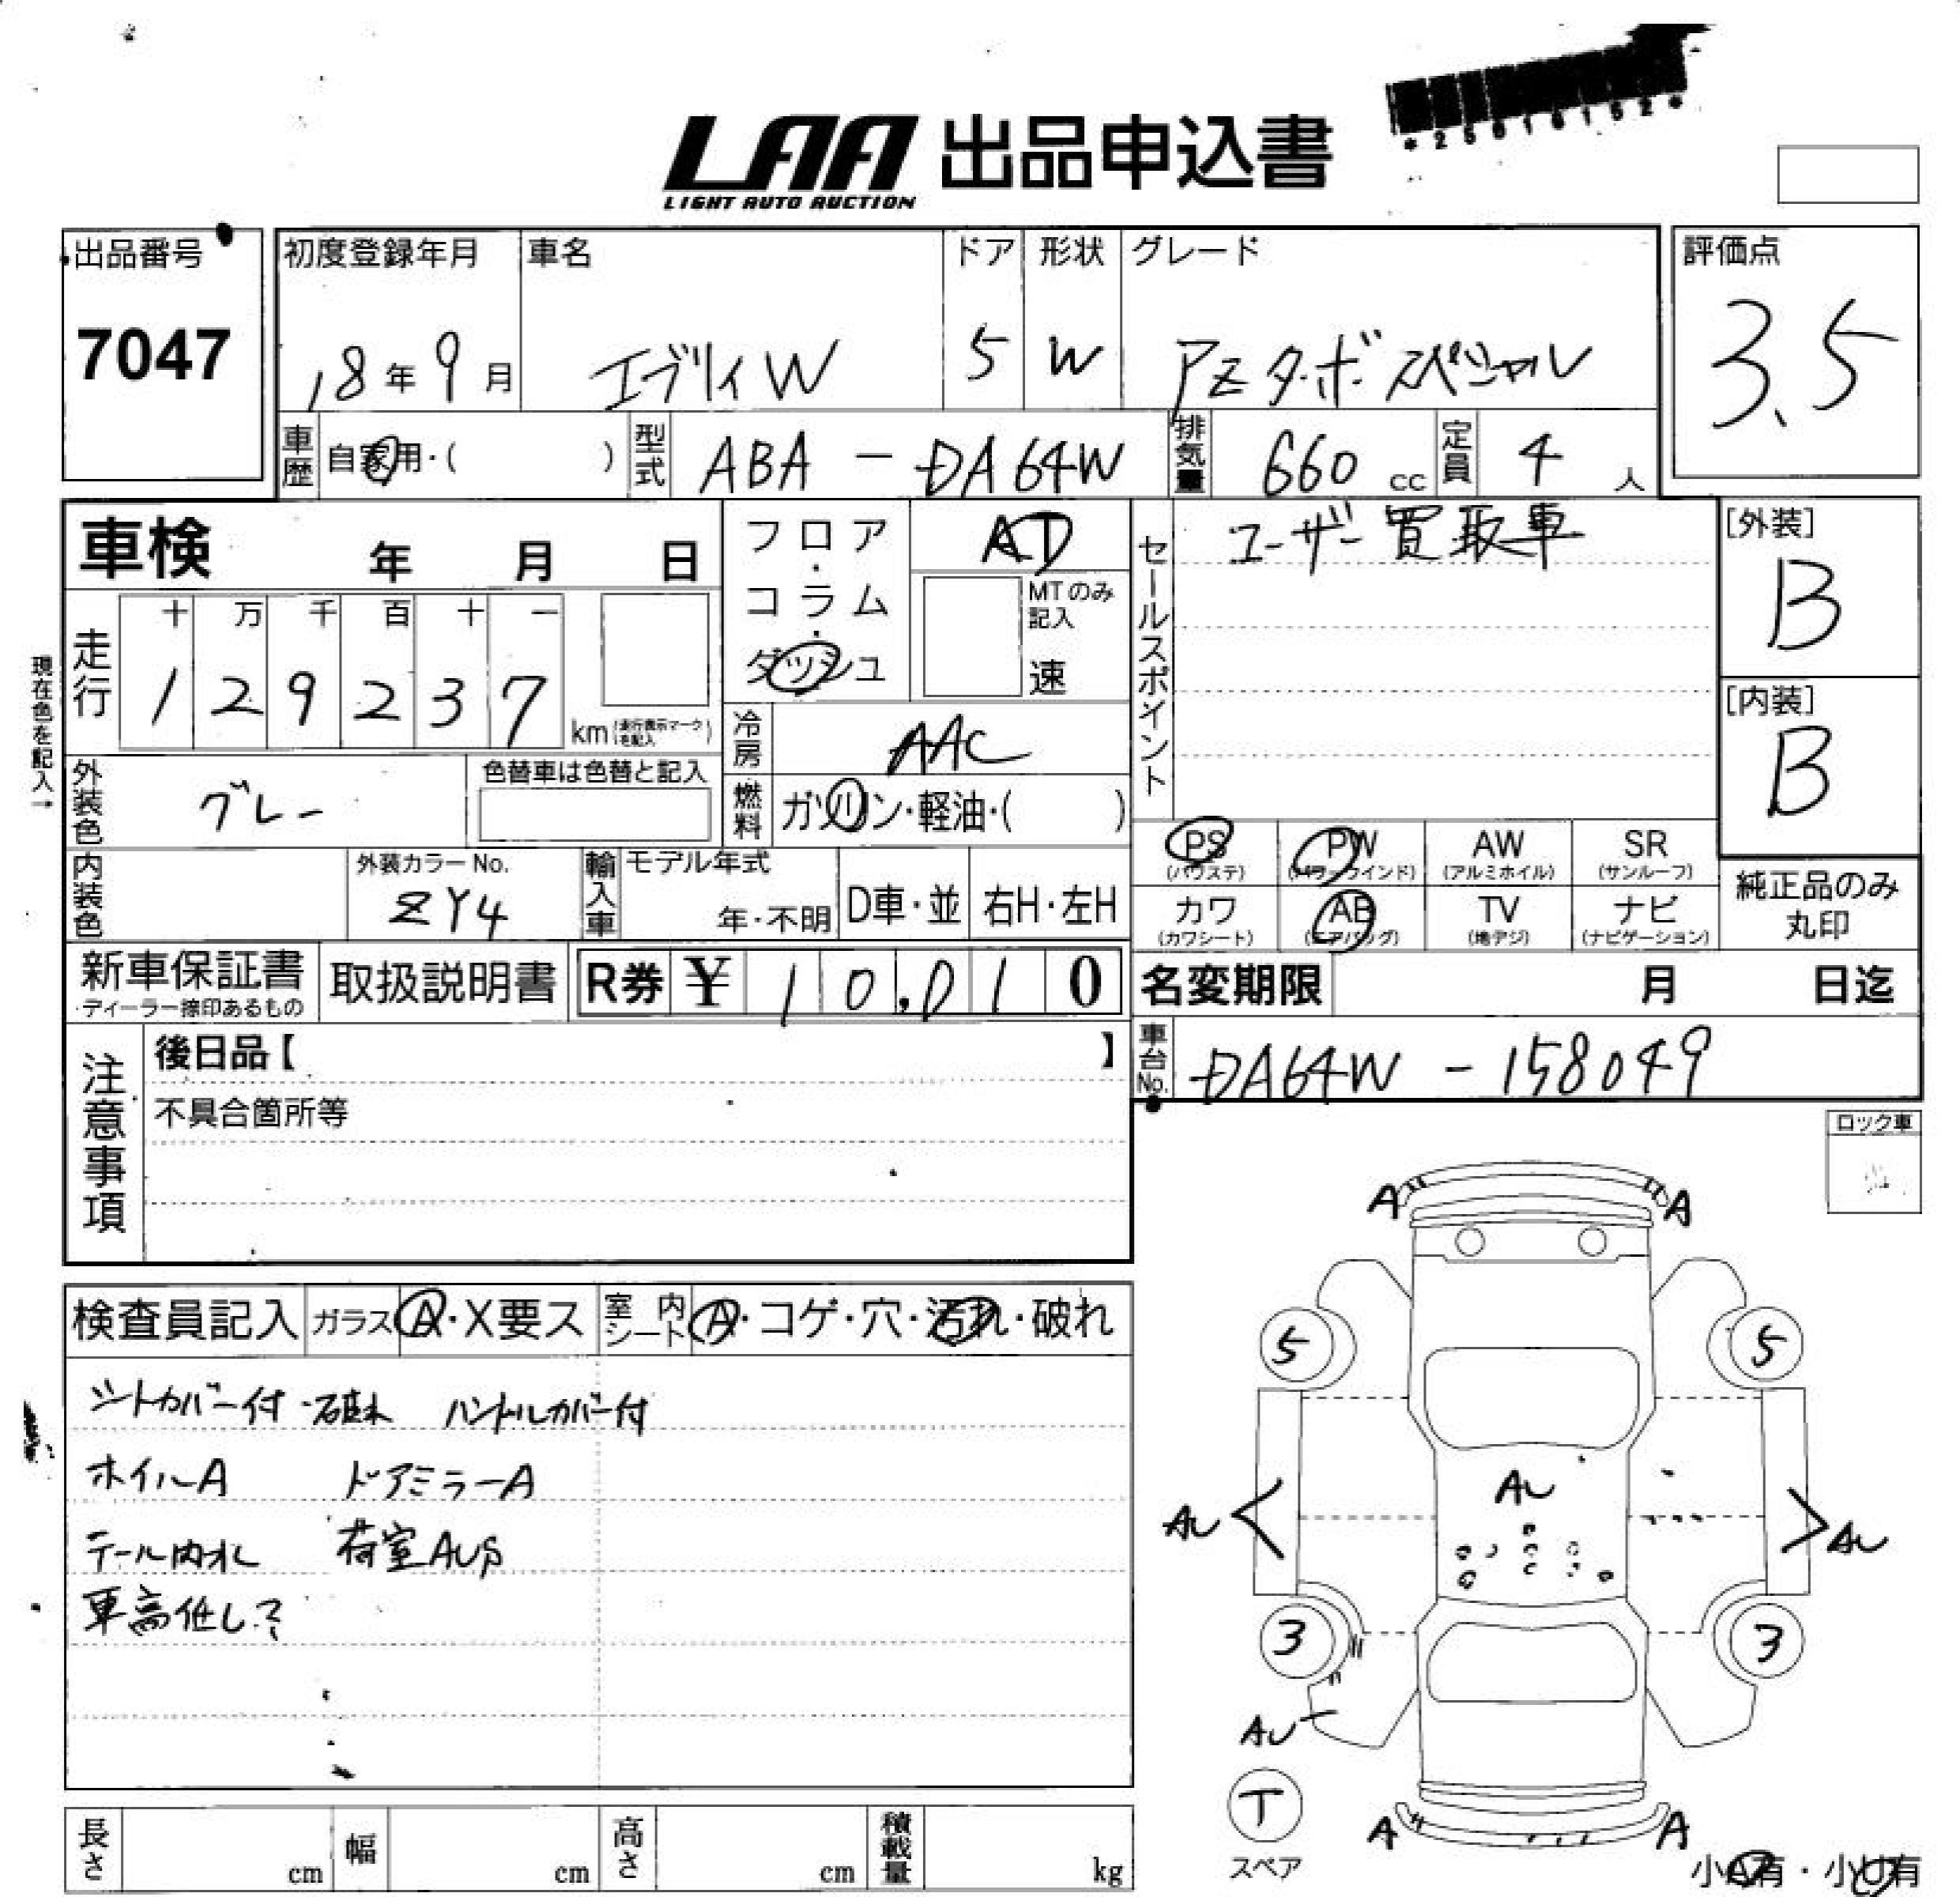 *25016152*
LAA 出品申込書
LIGHT AUTO AUCTION
出品番号
7047
初度登録年月
18年9月
車名
エブリィW
ドア
5
形状
W
グレード
PZターボスペシャル
評価点
3.5
車歴
自家用・( )
型式
ABA-DA64W
排気量
660 cc
定員
4 人
車検 年 月 日
走行
十 万 千 百 十 一
1 2 9 2 3 7
km (走行表示マークを記入)
現在色を記入→
フロア・コラム・ダッシュ
AT
MTのみ記入
速
冷房
AAC
燃料
ガソリン・軽油・( )
セールスポイント
ユーザー買取車
[外装]
B
[内装]
B
外装色
グレー
色替車は色替と記入
内装色
外装カラーNo.
ZY4
輸入車
モデル年式
年・不明
D車・並
右H・左H
PS
(パワステ)
PW
(パワーウインド)
AW
(アルミホイル)
SR
(サンルーフ)
カワ
(カワシート)
AB
(エアバッグ)
TV
(地デジ)
ナビ
(ナビゲーション)
純正品のみ
丸印
新車保証書
・ディーラー捺印あるもの
取扱説明書
R券 ¥ 10,010
名変期限 月 日迄
車台No.
DA64W-158049
注意事項
後日品【 】
不具合箇所等
ロック車
検査員記入
ガラス
A・X要ス
室内シート
A・コゲ・穴・汚れ・破れ
シートカバー付・破れ ハンドルカバー付
ホイルA ドアミラーA
テール内水 荷室AUS
車高低し?
A
A
5
5
AU
AU
AU
3
3
AU
T
スペア
A
A
小A有・小U有
長さ cm
幅 cm
高さ cm
積載量 kg